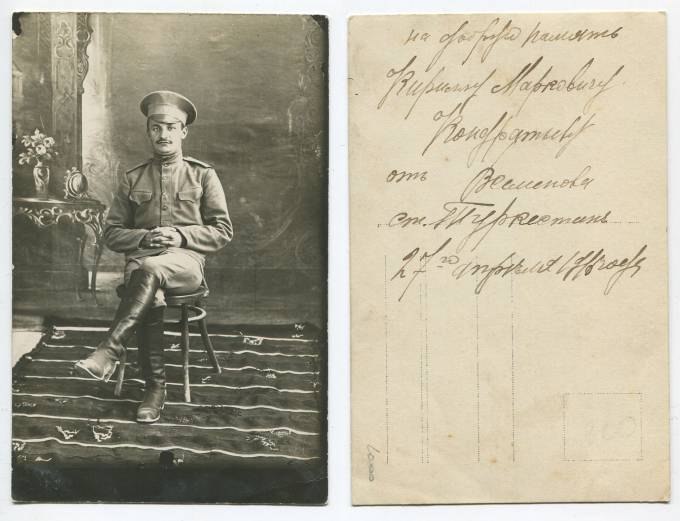 на добрую память
Кириллу Марковичу
Кондратьеву
отъ В. Семенова
ст. Туркестанъ
27го апреля
1000